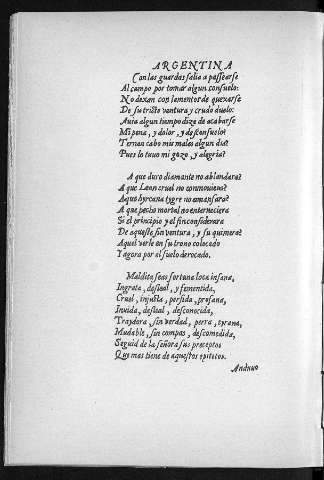 ARGENTINA
Con las guardas salia a passearse
Al campo por tomar algun consuelo:
No dexan con lamentos de quexarse
De su triste ventura y crudo duelo:
Auia algun tiempo dize de acabarse
Mi pena, y dolor, y desconsuelo?
Ternan cabo mis males algun dia?
Pues lo tuuo mi gozo, y alegria?
A que duro diamante no ablandara?
A que Leon cruel no commouiera?
A que hyrcana tygre no amansara?
A que pecho mortal no enterneciera
Si el principio y el fin considerara
De aqueste sin ventura, y su quimera?
Aquel verle en su trono colocado
Y agora por el suelo derocado.
Maldita seas fortuna loca insana,
Ingrata, desleal, y fementida,
Cruel, injusta, perfida, profana,
Inuida, desleal, desconocida,
Traydora, sin verdad, perra, tyrana,
Mudable, sin compas, descomedida,
Seguid de la señora sus preceptos
Que mas tiene de aquestos epitetos.